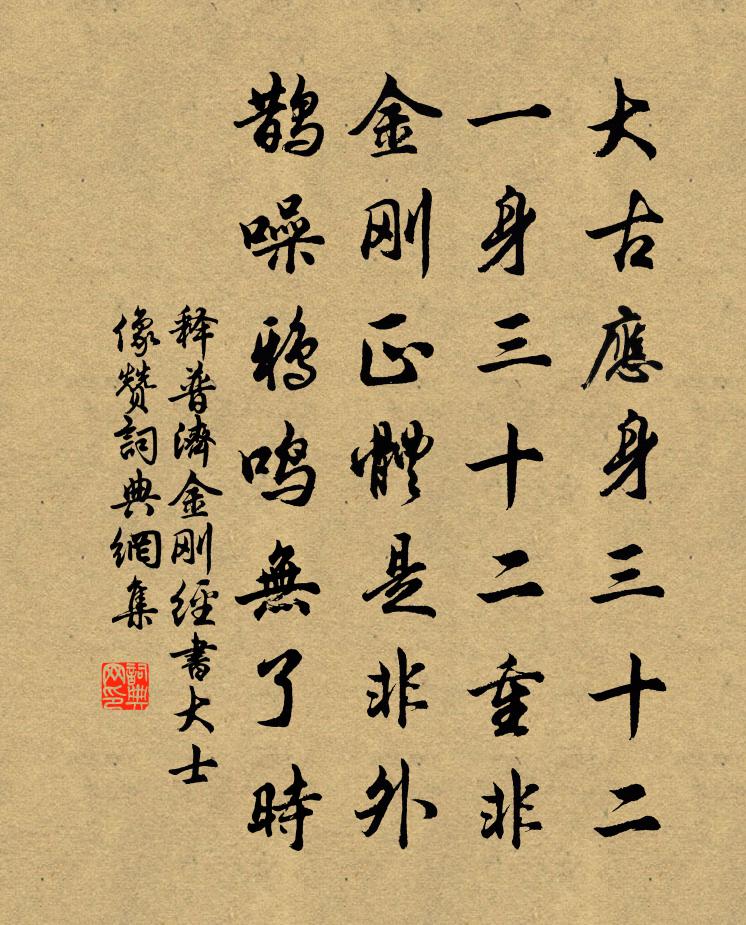 大古應身三十二
一身三十二重非
金刚正體是非外
鹊噪鸦鸣無了時
释普濟金刚經書大士
像赞詞典網集
詞典网印